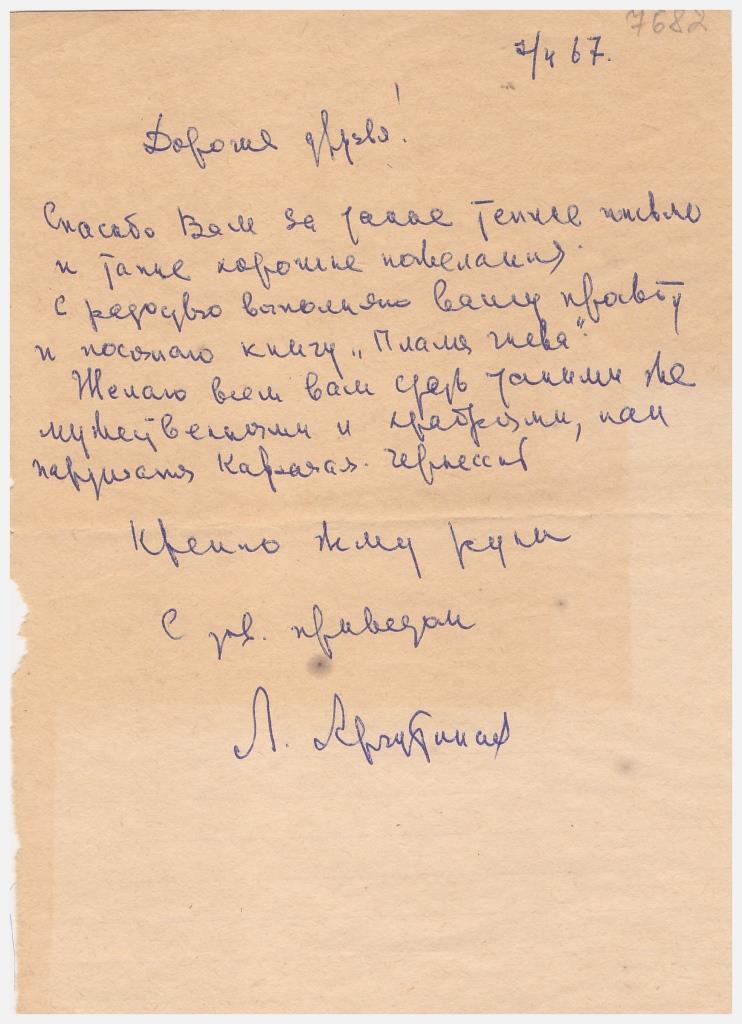 7682
7/4 67.
Дорогие друзья!
Спасибо Вам за такое теплое письмо
и такие хорошие пожелания.
С радостью выполняю вашу просьбу
и посылаю книгу „Пламя гнева".
Желаю всем вам стать такими же
мужественными и храбрыми, как
партизаны Карачая-Черкессии
Крепко жму руки
С ув. приветом
Л.